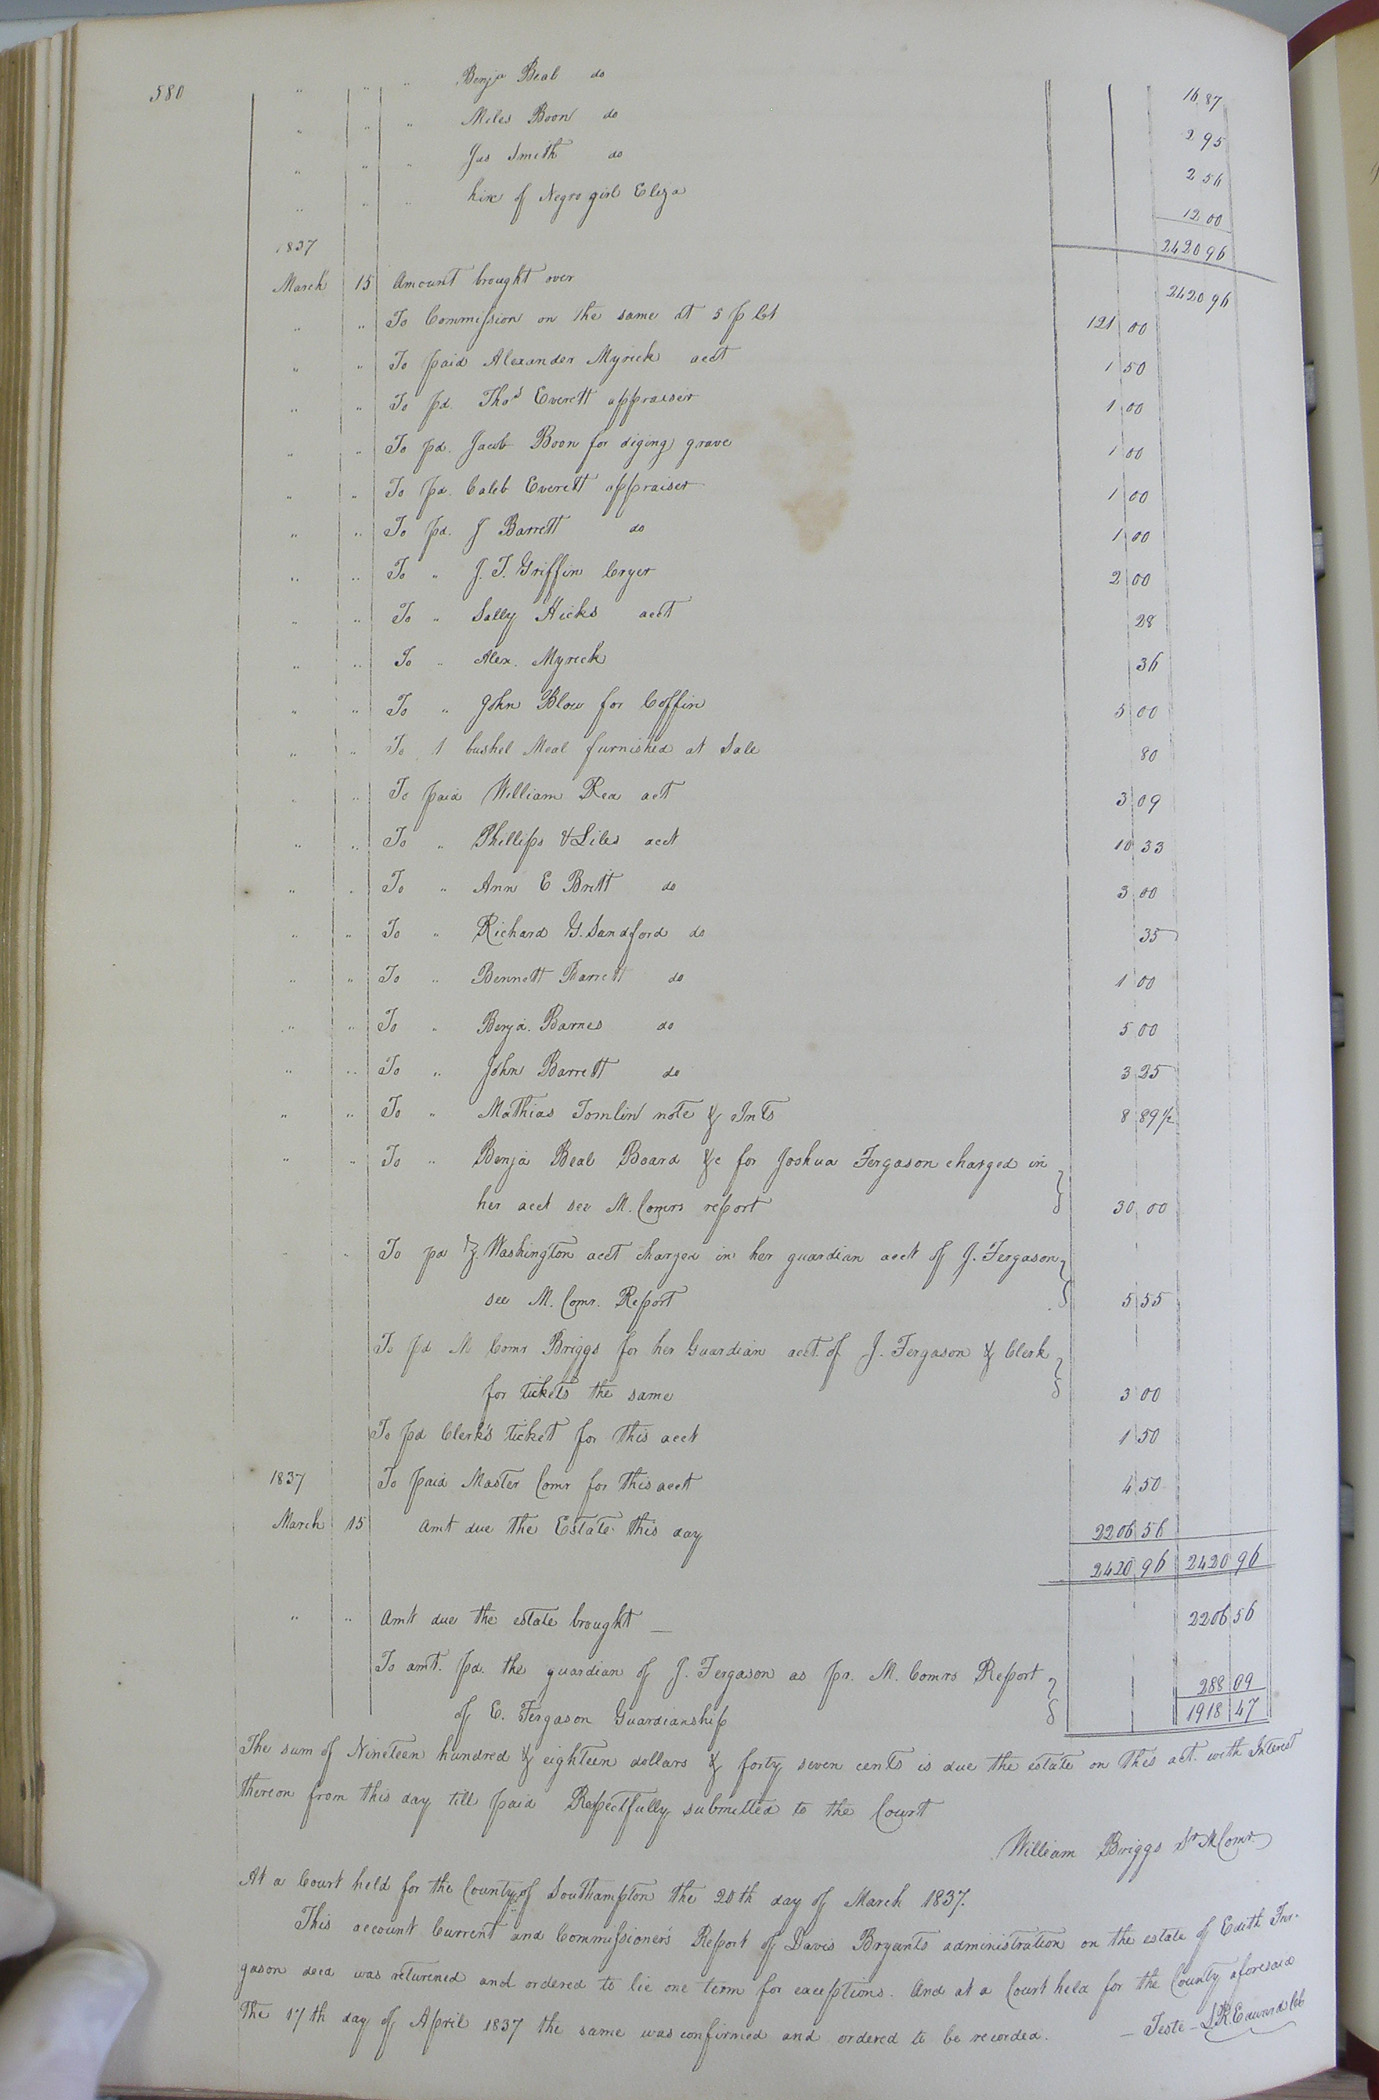 580
" " " Benja Beal do 16 87
" " " Miles Boon do 2 95
" " " Jas Smith do 2 56
" " " hire of Negro girl Eliza 12 00
1837 2420 96
March 15 Amount brought over 2420 96
" " To Commission on the same at 5 p Ct 121 00
" " To paid Alexander Myrick acct 1 50
" " To pd. Thos Everett appraiser 1 00
" " To pd. Jacob Boon for diging grave 1 00
" " To pd. Caleb Everett appraiser 1 00
" " To pd. J Barrett do 1 00
" " To " J. T. Griffin Cryer 2 00
" " To " Sally Hicks acct 28
" " To " Alex. Myrick 36
" " To " John Blow for Coffin 5 00
" " To 1 bushel Meal furnished at Sale 80
" " To paid William Rea act 3 09
" " To " Phillips & Liles acct 10 33
" " To " Ann E Britt do 3 00
" " To " Richard G. Sandford do 35
" " To " Bennett Barrett do 1 00
" " To " Benja. Barnes do 5 00
" " To " John Barrett do 3 25
" " To " Mathias Tomlin note & Ints 8 89 1/2
" " To " Benja Beal Board &c for Joshua Fergason charged in
her acct see M. Comrs report 30 00
" " To pd Washington acct charged in her guardian acct of J. Fergason
see M. Comr. Report 5 55
To pd M Comr Briggs for her Guardian acct. of J. Fergason & Clerk
for tickets the same 3 00
To pd Clerk's ticket for this acct 1 50
1837 To paid Master Comr for this acct 4 50
March 15 Amt due the Estate this day 2206 56
2420 96 2420 96
" " Amt due the estate brought — 2206 56
To amt. pd. the guardian of J. Fergason as pr. M. Comrs Report
of E. Fergason Guardianship 288 09
1918 47
The sum of Nineteen hundred & eighteen dollars & forty seven cents is due the estate on this act. with Interest
thereon from this day till paid Respectfully submitted to the Court
William Briggs Sr M Comr.
At a Court held for the County of Southampton the 20th day of March 1837.
This account Current and Commissioner's Report of Davis Bryants administration on the estate of Edith Fur-
gason decd was returened and ordered to lie one term for exceptions. And at a Court held for the County aforesaid
the 17th day of April 1837 the same was confirmed and ordered to be recorded.
— Teste — L. R. Edwards Cl